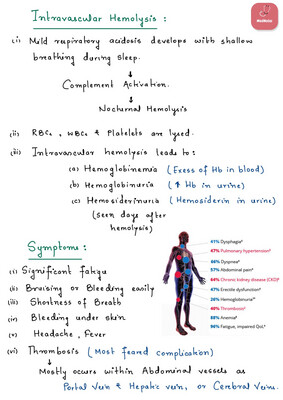 Intravascular Hemolysis :
(i) Mild respiratory acidosis develops with shallow
breathing during sleep.
↓
Complement Activation.
↓
Nocturnal Hemolysis
(ii) RBCs, WBCs & Platelets are lysed.
(iii) Intravascular hemolysis leads to :
(a) Hemoglobinemia (Excess of Hb in blood)
(b) Hemoglobinuria (↑ Hb in urine)
(c) Hemosiderinuria (Hemosiderin in urine)
(seen days after
hemolysis)
Symptoms :
(i) Significant fatigue
(ii) Bruising or Bleeding easily
(iii) Shortness of Breath
(iv) Bleeding under skin
(v) Headache, Fever
(vi) Thrombosis (Most feared complication)
↓
Mostly occurs within Abdominal vessels as
Portal Vein & Hepatic vein, or Cerebral Veins.
41% Dysphagia
47% Pulmonary hypertension
66% Dyspnea
57% Abdominal pain
64% Chronic kidney disease (CKD)
47% Erectile dysfunction
26% Hemoglobinuria
40% Thrombosis
88% Anemia
96% Fatigue, impaired QoL